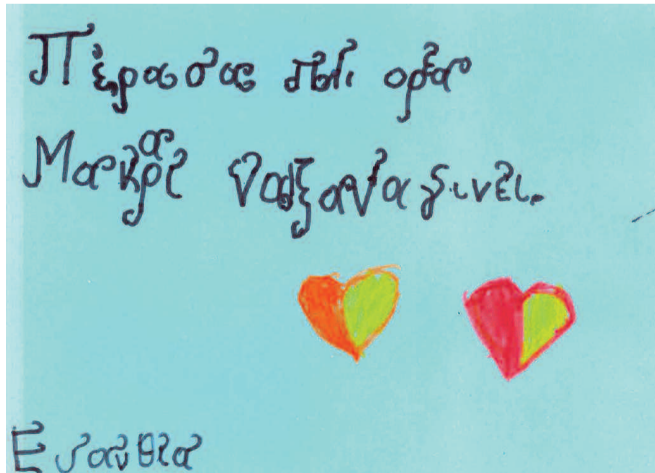 Πέρασα πολί ορέα
Μακάρι ναξαναγινει.
Ευανθία